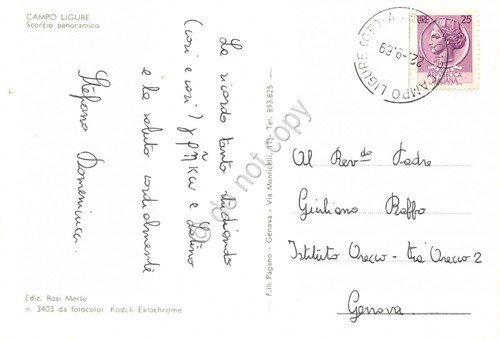 CAMPO LIGURE
Scorcio panoramico
La ricordo tanto studiando
(così e così!) γρηκω e Latino
e la saluto cordialmente
Stefano Domenicucci
Ediz. Rosi Merlo
n. 3403 da fotocolor Kodak Ektachrome
F.lli Pagano - Genova - Via Monticelli, 11r - Tel. 893.825
CAMPO LIGURE (GE) - A -
22-9.69
LIRE 25
REPUBBLICA
ITALIANA
Al Rev.do Padre
Giuliano Raffo
Istituto Arecco - Via Arecco 2
Genova
do not copy